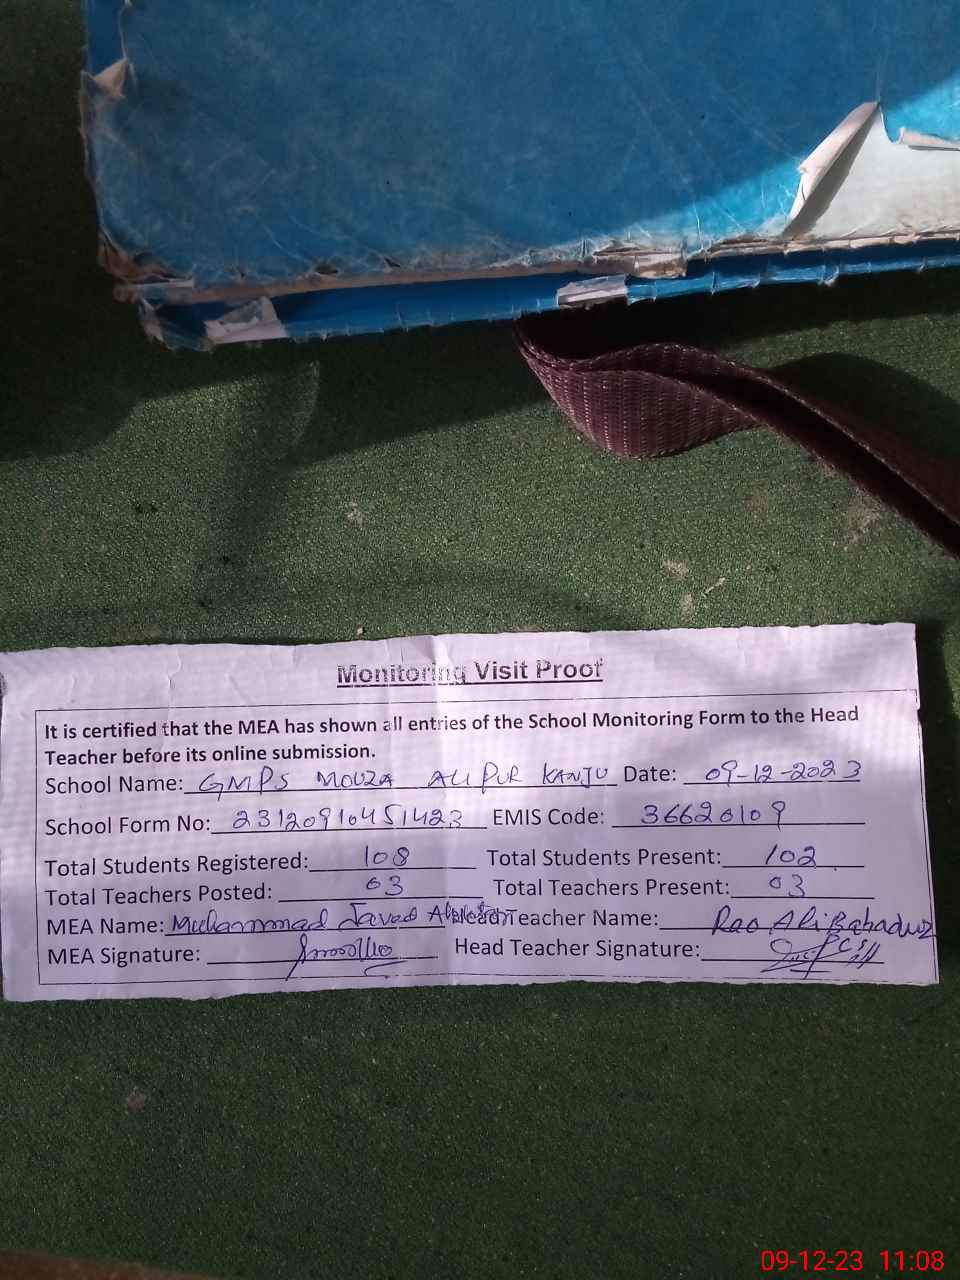 Monitoring Visit Proof
It is certified that the MEA has shown all entries of the School Monitoring Form to the Head
Teacher before its online submission.
School Name: GMPS MOUZA ALI PUR KANJU Date: 09-12-2023
School Form No: 23120910451423 EMIS Code: 36620109
Total Students Registered: 108 Total Students Present: 102
Total Teachers Posted: 03 Total Teachers Present: 03
MEA Name: Muhammad Javed Head Teacher Name: Rao Ali Bahadur
MEA Signature: Head Teacher Signature:
09-12-23 11:08